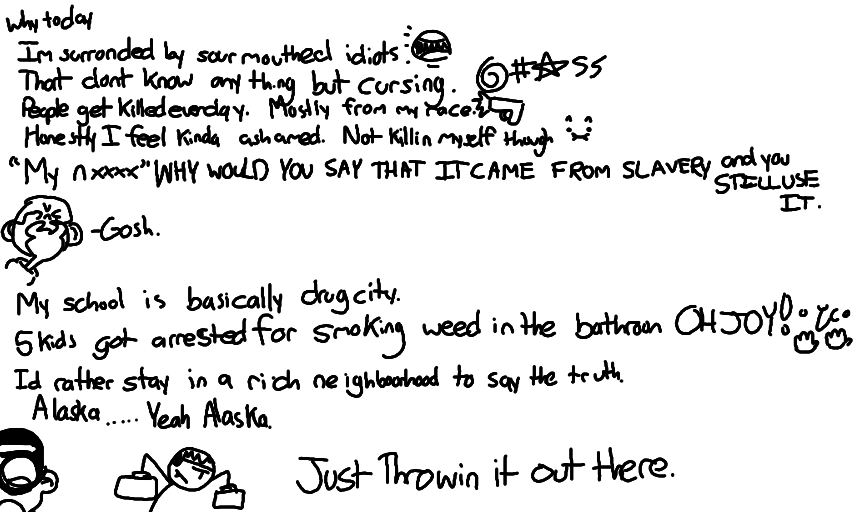 why today
Im surronded by sour mouthed idiots.
That dont know any thing but cursing. @#☆SS
People get killed everday. Mostly from my race.
Honestly I feel kinda ashamed. Not killin myself though
"My nxxxx" WHY WOULD YOU SAY THAT IT CAME FROM SLAVERY and you STILL USE IT.
-Gosh.
My school is basically drug city.
5 kids got arrested for smoking weed in the bathroon OH JOY!
Id rather stay in a rich neighbourhood to say the truth.
Alaska..... Yeah Alaska.
Just Throwin it out there.